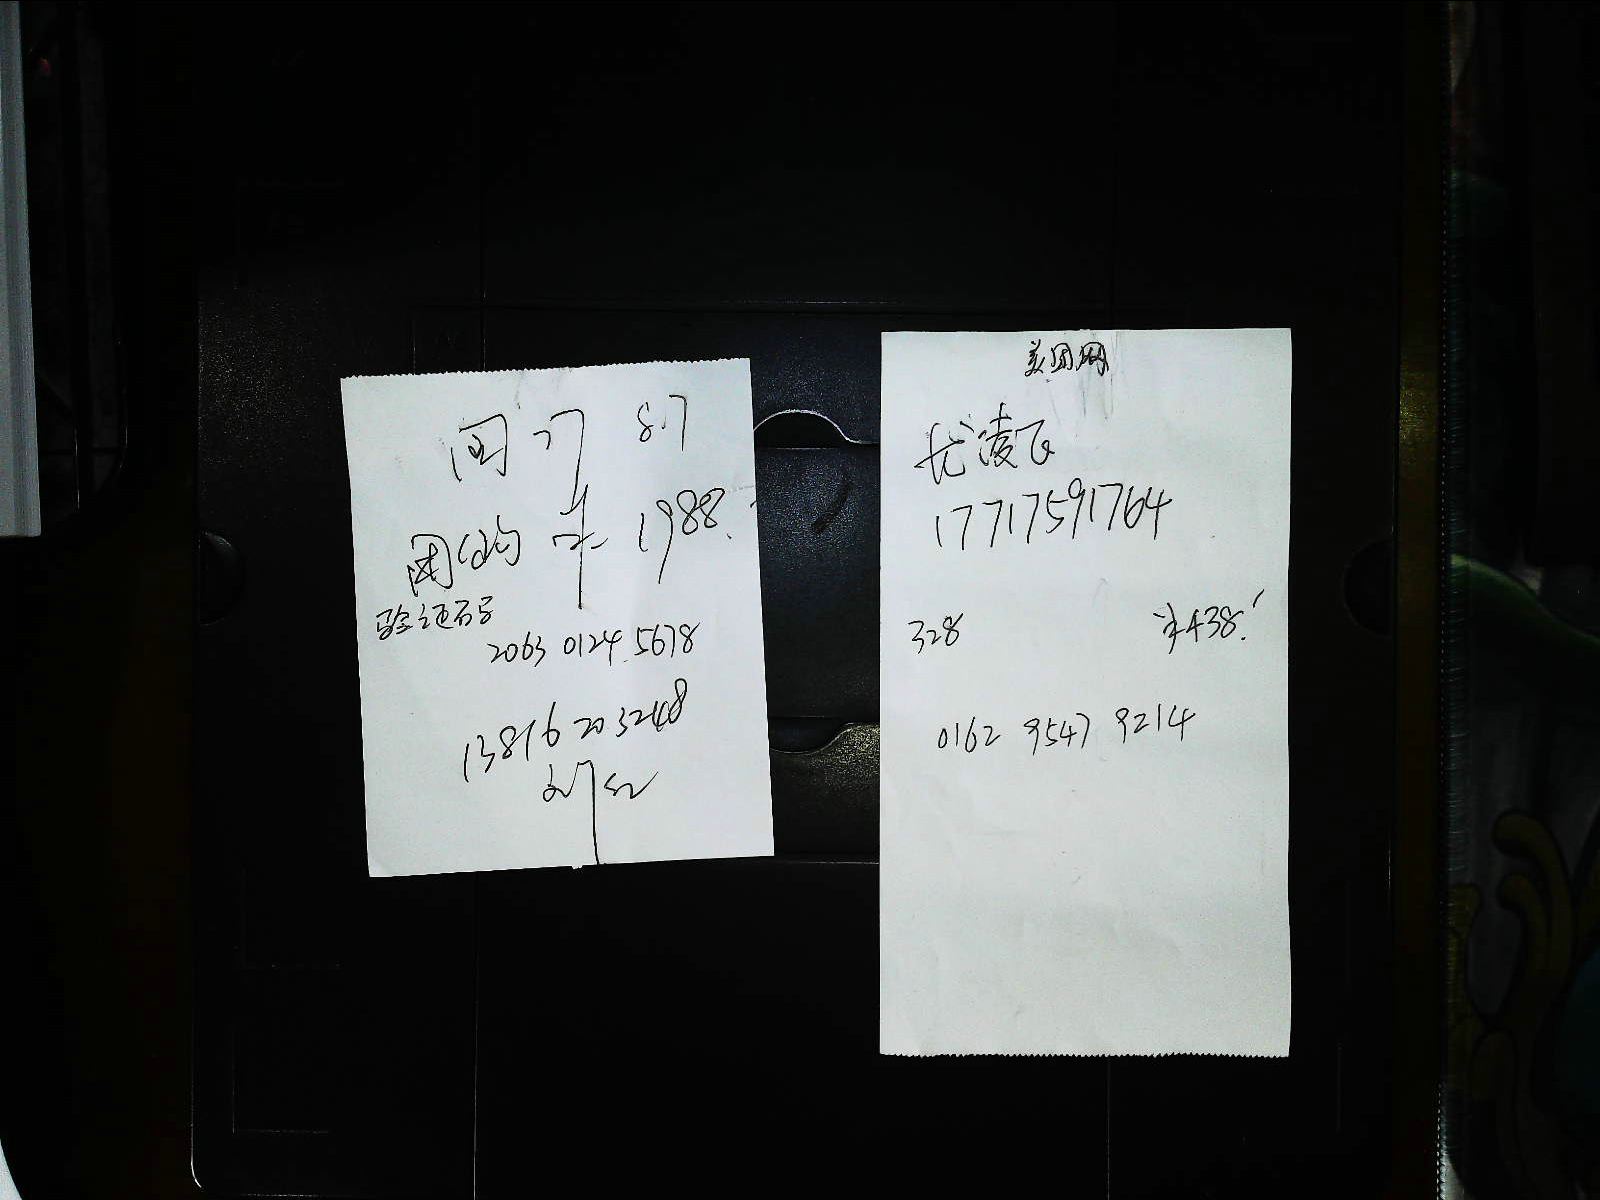 闵行 8.7
团购 1988.
验证码号
2063 0124 5678
13816203248
刘红
美团网
尤凌飞
17717591764
328 半438.
0162 9547 9214